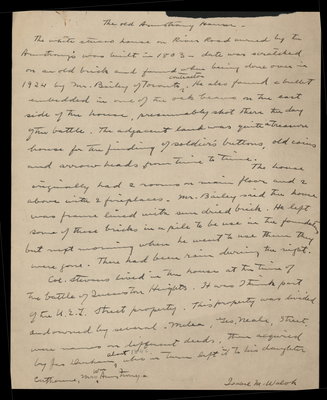 The old Armstrong House -
The white stucco house on River Road owned by the
Armstrong's was built in 1803 - date was scratched
on an old brick and found when being done over in
1924 by Mr. Bailey of Toronto, contractor. He also found a bullet
embedded in one of the oak beams on the east
side of the house, presumably shot there the day
of the battle. The adjacent land was quite a treasure
house for the finding of soldier's buttons, old coins
and arrow heads from time to time.
The house
originally had 2 rooms on main floor and 2
above with 2 fireplaces. Mr. Bailey said the house
was frame lined with sun dried brick. He left
some of these bricks in a pile to be use in the foundation
but next morning when he went to use them they
were gone. There had been rain during the night.
Col. Stevens lived in the house at the time of
the battle of Queenston Heights. It was I think part
of the U.E.L. Street property. This property was divided
and owned by several - Geo, Neale, Street,
were names on different deeds, then acquired
by Jas Durham, about who in turn left it to his daughter
Catharine, Mrs
Isabel M. Walsh